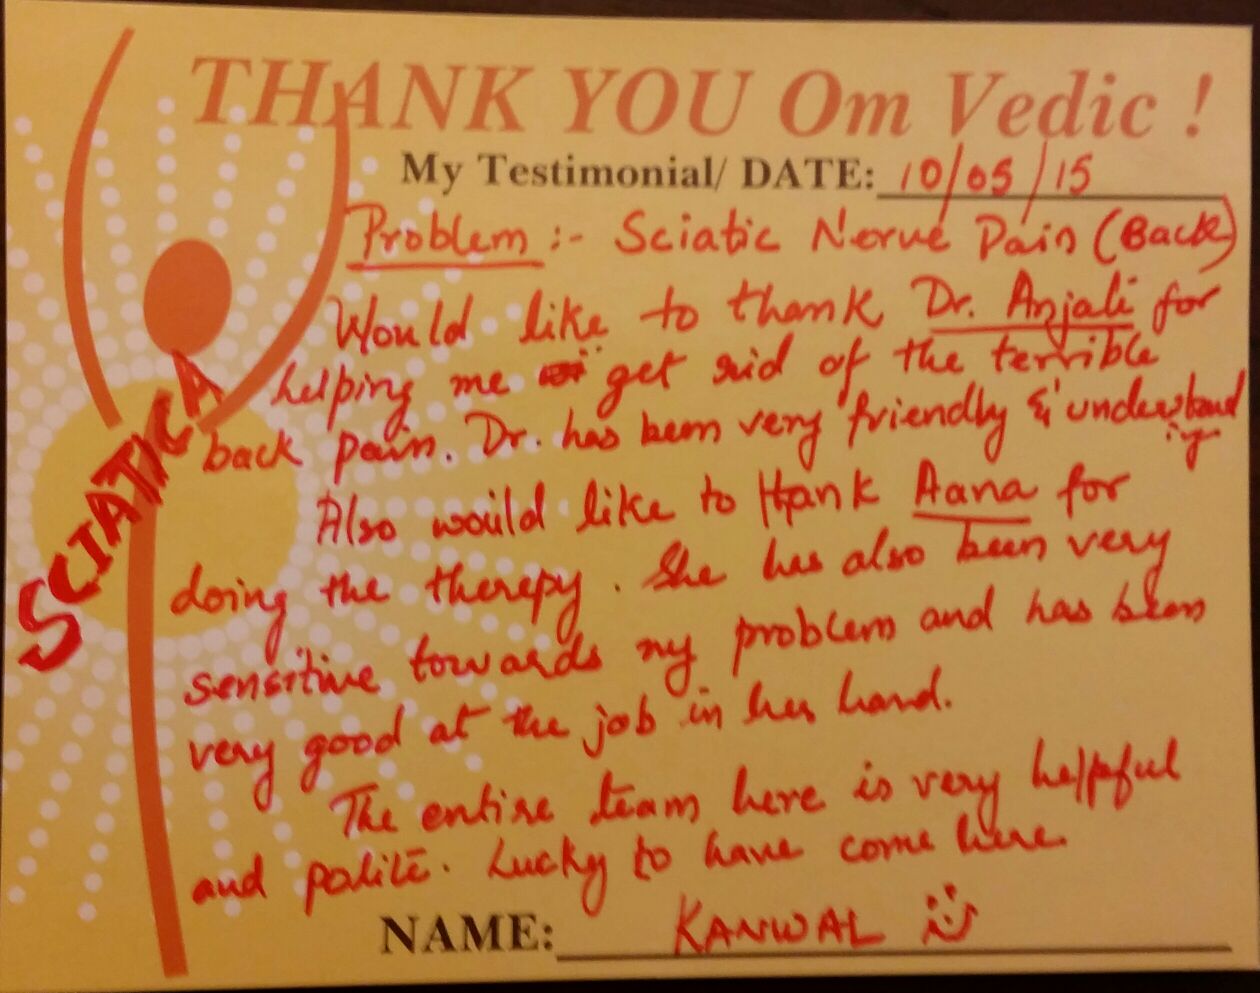 THANK YOU Om Vedic !
My Testimonial/ DATE: 10/05/15
Problem :- Sciatic Nerve Pain (Back)
Would like to thank Dr. Anjali for
helping me get rid of the terrible
back pain. Dr. has been very friendly & understand
ing
Also would like to thank Aana for
doing the therepy. She has also been very
sensitive towards my problem and has been
very good at the job in her hand.
The entire team here is very helpful
and polite. Lucky to have come here.
NAME: KANWAL
SCIATICA